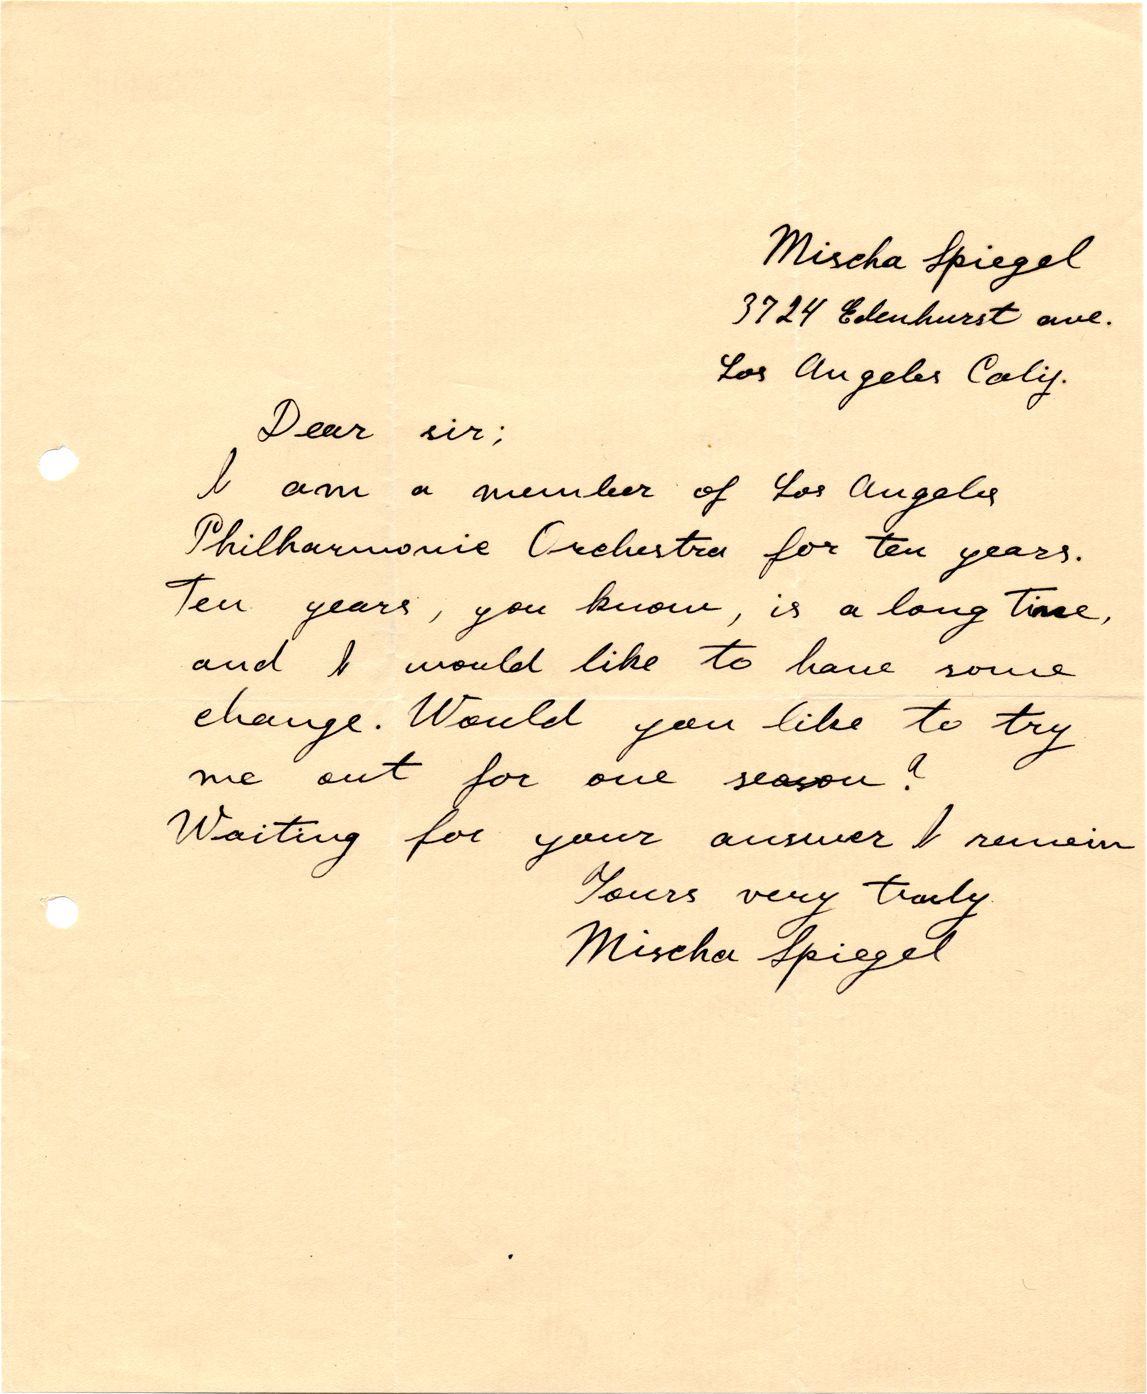 Mischa Spiegel
3724 Edenhurst ave.
Los Angeles Calif.
Dear sir;
I am a member of Los Angeles
Philharmonic Orchestra for ten years.
Ten years, you know, is a long time,
and I would like to have some
change. Would you like to try
me out for one season?
Waiting for your answer I remain
Yours very truly
Mischa Spiegel